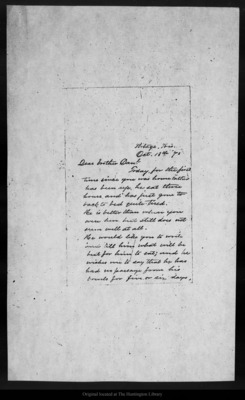 Portage, Wis.
Oct. 18th
Dear Brother Dan:
Today, for the first
time since you was home father
has been up, he sat three
hours and has just gone to
back to bed quite tired.
He is better than when you
were here but still does not
seem well at all.
He would like you to write
and tell him what will be
best for him to eat, and he
wishes me to say that he has
had no passage from his
bowels for five or six days.
Original located at The Huntington Library